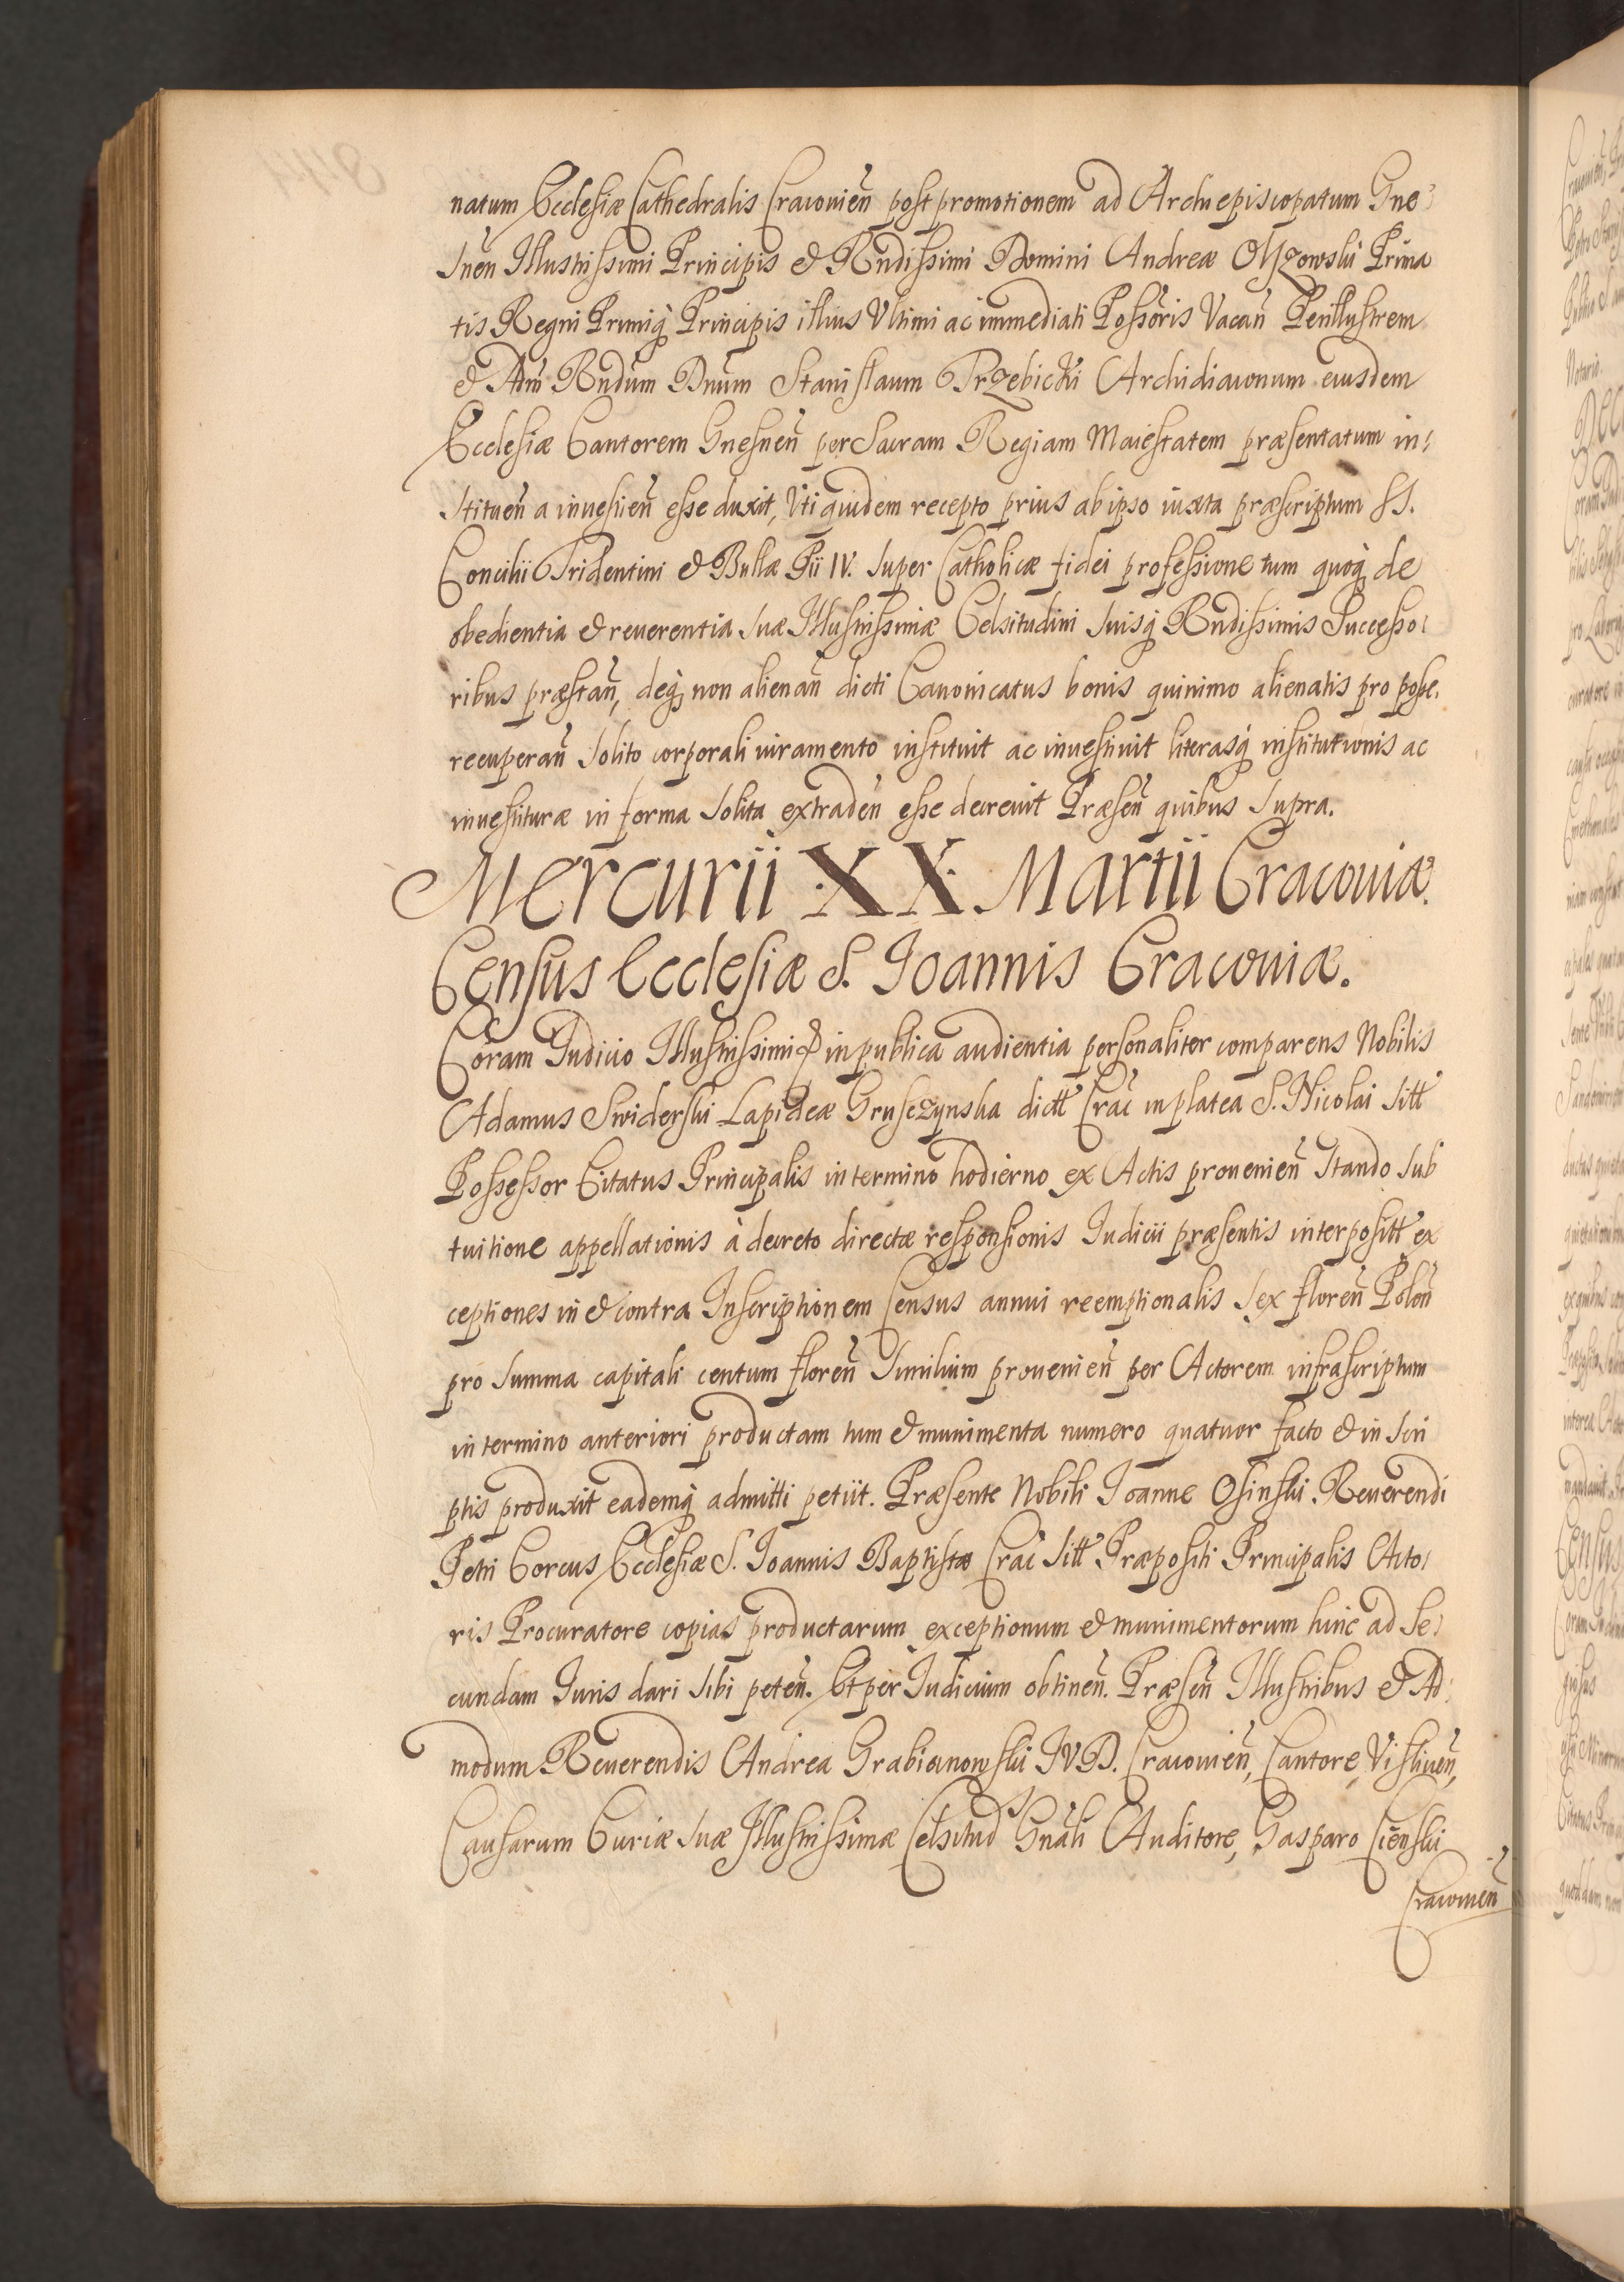 natum Ecclesiæ Cathedralis Cracovien̄ post promotionem ad Archiepiscopatum Gne
snen̄ Illustrissimi Principis & Rndissimi Domini Andreæ Olszowski Prima
tis Regni Primiq̃ Principis illius Ultimi ac immediati Possõris Vacan̄ Perillustrem
& Adm̄ Rndum Dnum Stanislaum Trzebicki Archidiaconum eiusdem
Ecclesiæ Cantorem Gnesnen̄ per Sacram Regiam Maiestatem præsentatum in
stituen̄ a investien̄ esse duxit, Uti quidem recepto prius ab ipso iuxta præscriptum SS.
Concilii Tridentini & Bullæ Pii IV. super Catholicæ fidei professione tum quoq̃ de
obedientia & reverentia suæ Illustrissimæ Celsitudini suisq̃ Rndissimis Successo
ribus præstan̄, deq̃ non alienan̄ dicti Canonicatus bonis quinimo alienatis pro posse
recuperan̄ solito corporali iuramento instituit ac investivit literasq̃ institutionis ac
investituræ in forma solita extraden̄ esse decrevit Præsen̄ quibus supra.
Mercurii XX. Martii Cracoviæ.
Census Ecclesiæ S. Joannis Cracoviæ.
Coram Judicio Illustrissimi & in publica audientia personaliter comparens Nobilis
Adamus Swiderski Lapideæ Gruszczynska dictt Crac̄ in platea S. Nicolai sitt
Possessor Citatus Principalis in termino hodierno ex Actis provenien̄ Stando sub
tuitione appellationis à decreto directæ responsionis Judicii præsentis interpositt ex
ceptiones in & contra Inscriptionem Census annui reemptionalis sex floren̄ Polon̄
pro summa capitali centum floren̄ similium provenien̄ per Actorem infrascriptum
in termino anteriori productam tum & munimenta numero quatuor facto & in scri
ptis produxit eademq̃ admitti petiit. Præsente Nobili Joanne Osinski Reverendi
Petri Corcus Ecclesiæ S. Joannis Baptistæ Crac̄ sitt Præpositi Principalis Acto
ris Procuratore copias productarum exceptionum & munimentorum hinc ad se
cundam Juris dari sibi peten̄. Et per Judicium obtinen̄. Præsen̄ Illustribus & Ad
modum Reverendis Andrea Grabianowski JVD. Cracovien̄, Cantore Vislicen̄,
Causarum Curiæ suæ Illustrissimæ Celsitud Gnāli Auditore, Gasparo Cienski
Cracovien̄